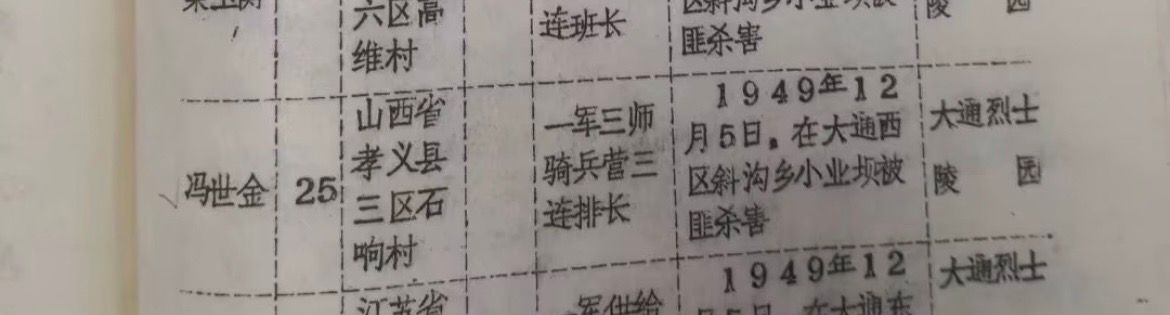 六区高
维村
连班长
区斜沟乡小业坝被
匪杀害
陵 园
冯世金
25
山西省
孝义县
三区石
响村
一军三师
骑兵营三
连排长
1949年12
月5日，在大通西
区斜沟乡小业坝被
匪杀害
大通烈士
陵 园
江苏省
一军供给
1949年12
月5日，在大通东
大通烈士